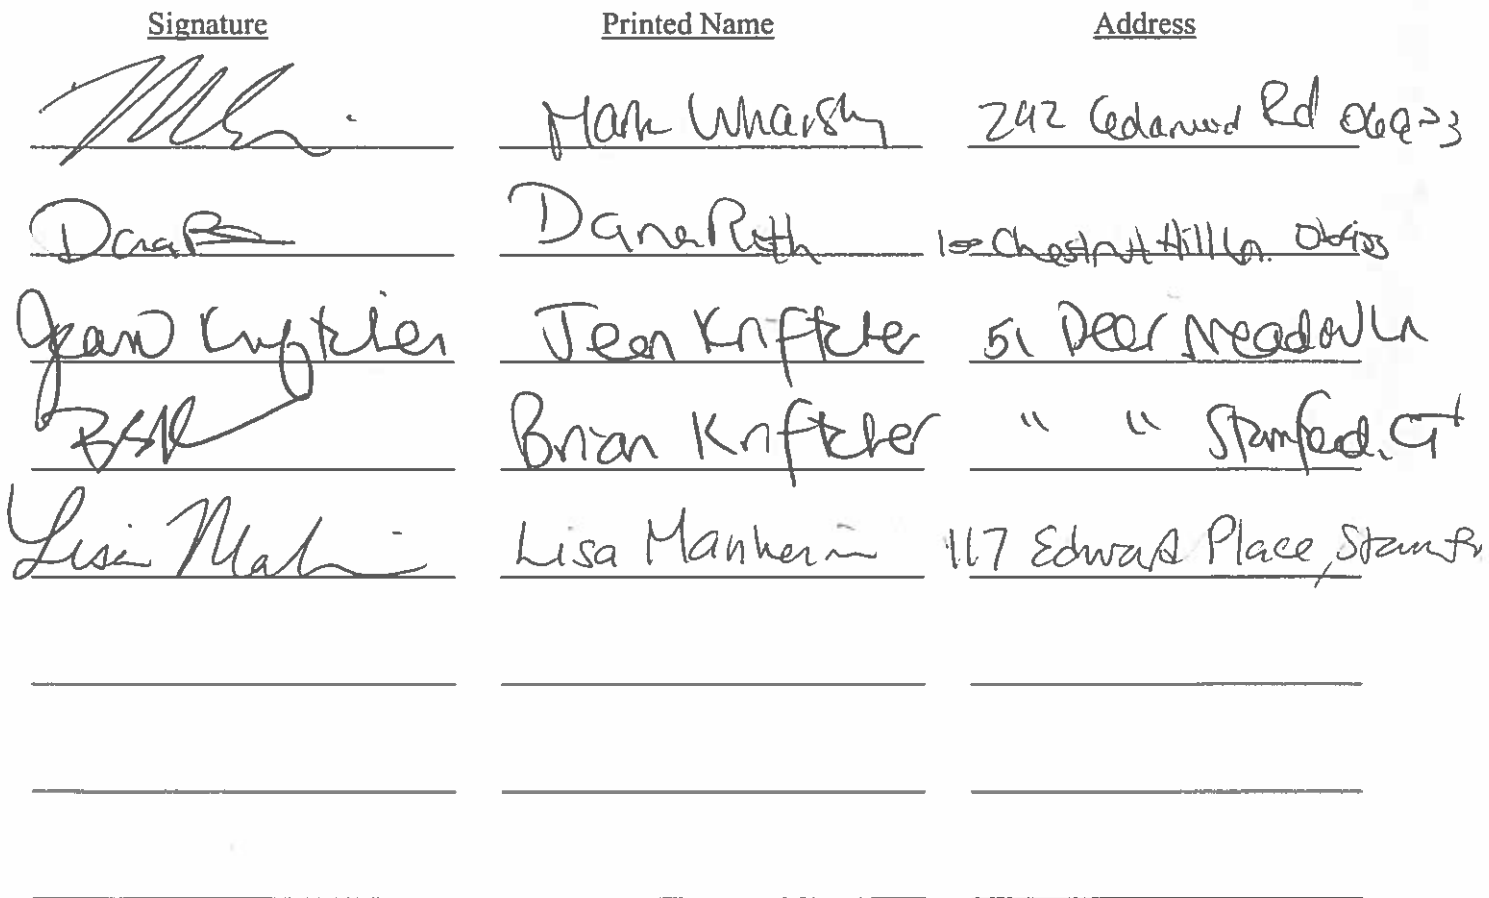 Signature Printed Name Address
Mark Wharsky 242 Cedarwood Rd 06903
Dana Ruth Chestnut Hill Ln. 06903
Jean Kriftcher Jeen Kriftcher 51 Deer Meadow Ln
Brian Kriftcher " " Stamford, CT
Lisa Manheim 117 Edward Place, Stamfr